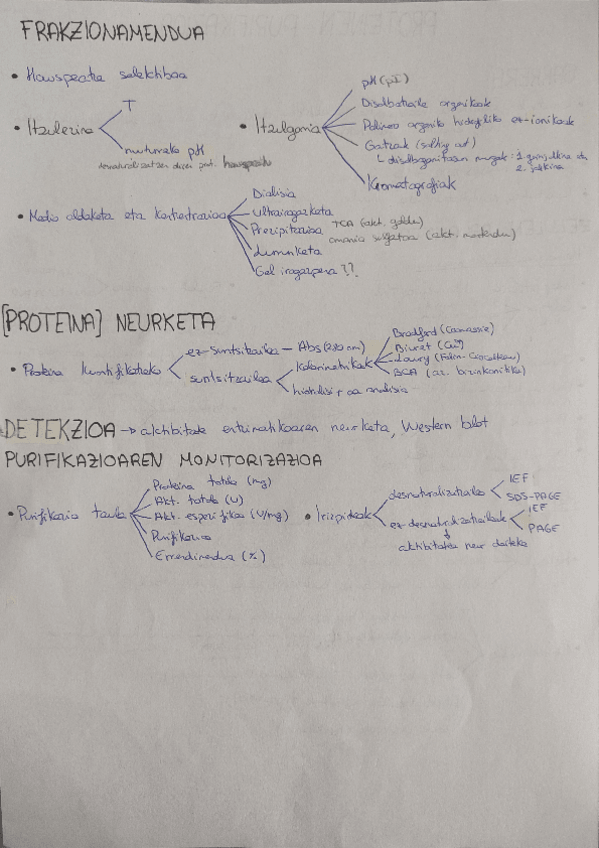 FRAKZIONAMENDUA
• Hauspeatze selektiboa
• Itzulezina
T
muturreko pH
desnaturalizatzen diren prot. hauspeatu
• Itzulgarria
pH (pI)
Disolbatzaile organikoak
Polimero organiko hidrofiliko ez-ionikoak
Gatzak (salting out)
disolbagarritasun mugak: 1. gainjalkina eta
2. jalkina
Kromatografiak
• Medio aldaketa eta kontzentrazioa
Dialisia
Ultrairagazketa
Prezipitazioa TCA (akt. galdu)
amonio sulfatoa (akt. mantendu)
Gel iragazpena ??
[PROTEINA] NEURKETA
• Proteina kuntifikatzeko
ez-suntsitzailea - Abs (280 nm)
suntsitzailea
Kolorimetrikoak
Bradford (Coomassie)
Biuret (Cu²⁺)
Lowry (Folin-Ciocalteau)
BCA (az. bizinkoniko)
hidrolisi + aa analisia
DETEKZIOA → aktibitate entzimatikoaren neurketa, Western blot
PURIFIKAZIOAREN MONITORIZAZIOA
• Purifikazio taula
Proteina totala (mg)
Akt. totala (U)
Akt. espezifikoa (U/mg)
Purifikazioa
Errendimendua (%)
• Irizpideak
desnaturalizatzaileak
IEF
SDS-PAGE
ez desnaturalizatzaileak
IEF
PAGE
aktibitatea neur daiteke